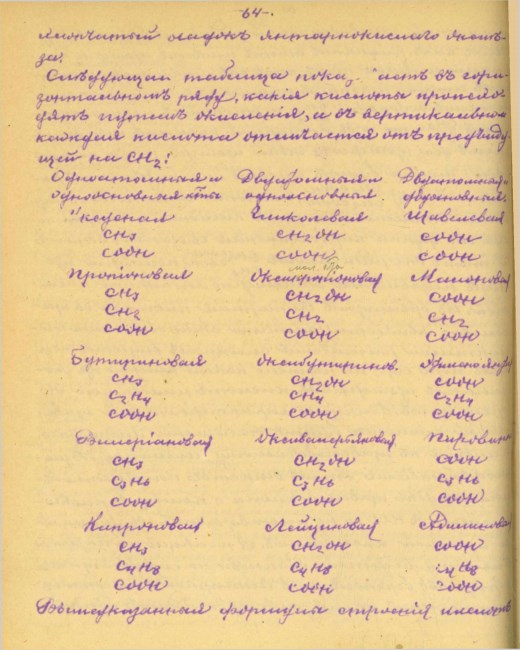 -64-.
хлопчатый осадокъ янтарнокислаго желѣ-
за.
Слѣдующая таблица пока, въ гори-
зонтальномъ ряду, какія кислоты происхо-
дятъ путемъ окисленія, а въ вертикальномъ
каждая кислота отличается отъ предъиду-
щей на CH2:
Одноатомныя и Двуатомныя и Двуатомныя и
одноосновныя к̃ты одноосновныя двуосновныя.
Уксусная Гликолевая Щавелевая
CH3 CH2OH COOH
COOH COOH COOH
Пропіоновая Оксипропіоновая Малоновая
CH3 CH2OH COOH
CH2 CH2 CH2
COOH COOH COOH
Бутириновая Оксибутиринов.
CH3 CH2OH COOH
C2H4 CH4 C2H4
COOH COOH COOH
Валеріановая Оксивалеріановая
CH3 CH2OH COOH
C3H6 C3H6 C3H6
COOH COOH COOH
Капроновая Лейциновая Адипиновая
CH3 CH2OH COOH
C4H8 C4H8 C4H8
COOH COOH COOH
Вышеуказанныя формулы строенія кислотъ